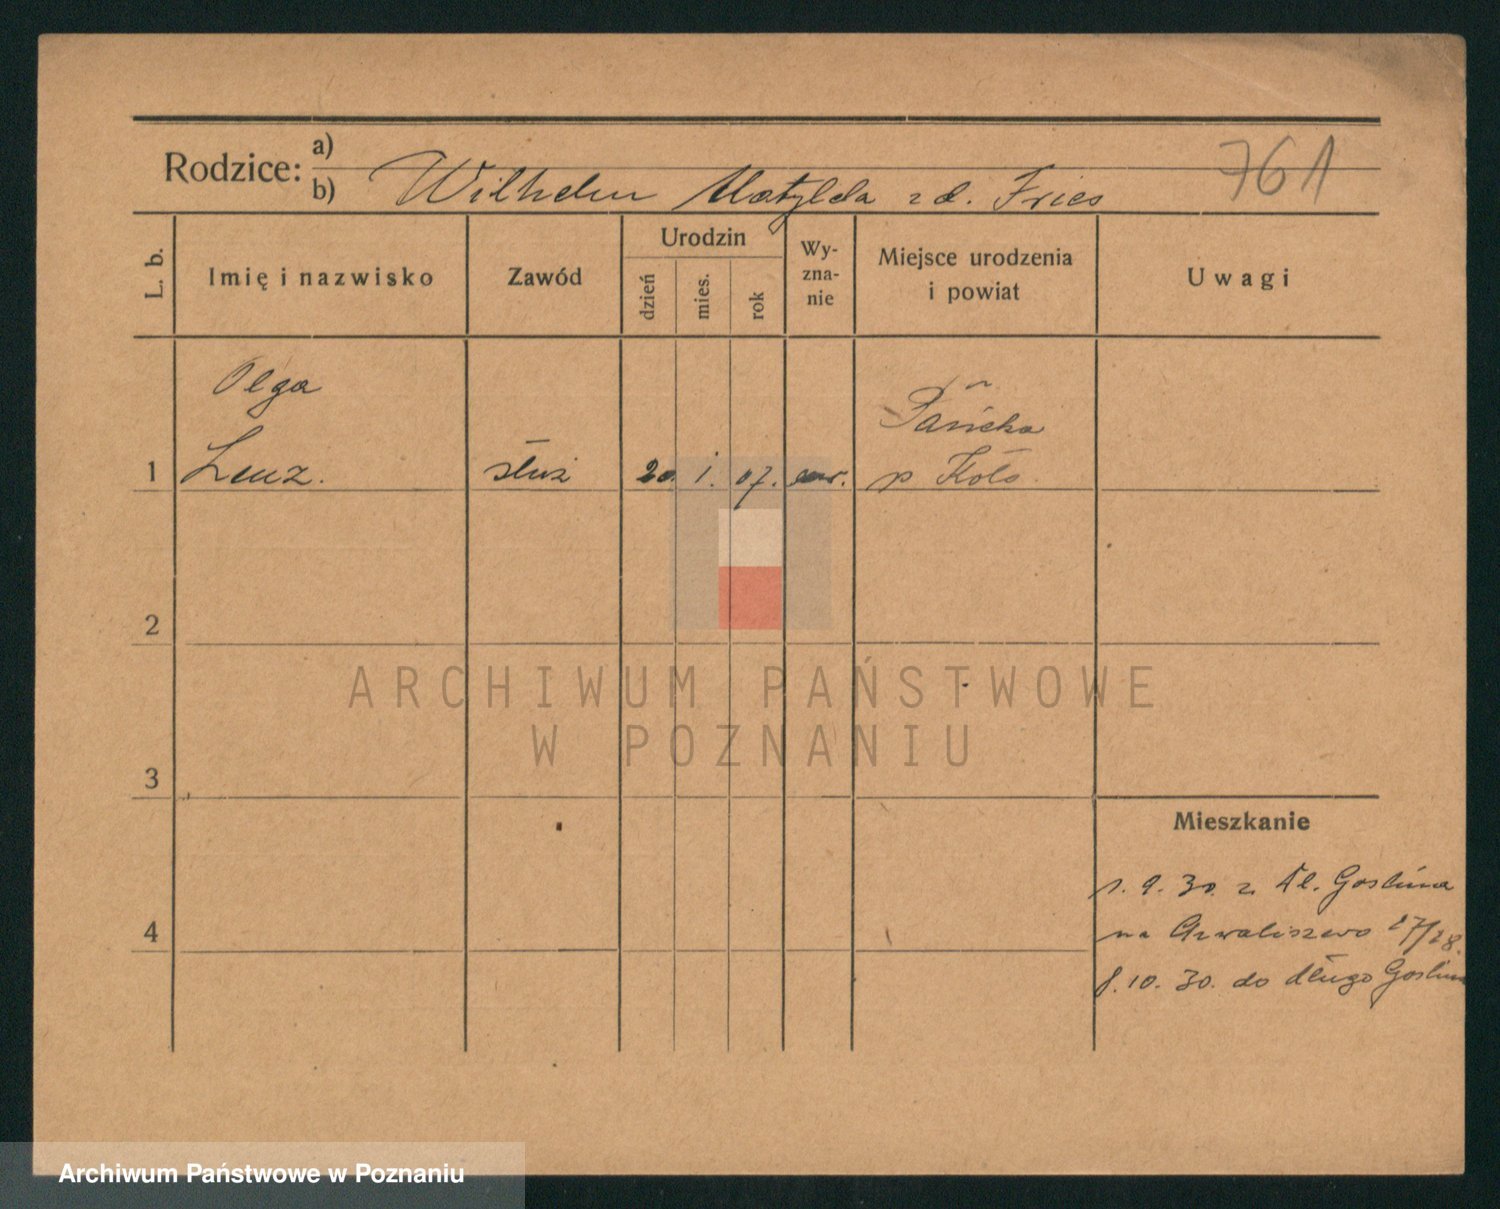 Rodzice:
a)
b) Wilhelm Matylda zd. Fries
761
L. b.
Imię i nazwisko
Zawód
Urodzin
dzień
mies.
rok
Wy-
zna-
nie
Miejsce urodzenia
i powiat
Uwagi
Olga
1 Lenz.
służ
20. 1. 07. ew.
p Koło
2
3
4
Mieszkanie
1. 9. 30. z Dł. Goslina
na Chwaliszewo 27/28.
8. 10. 30. do długo Goslin
ARCHIWUM PAŃSTWOWE
W POZNANIU
Archiwum Państwowe w Poznaniu